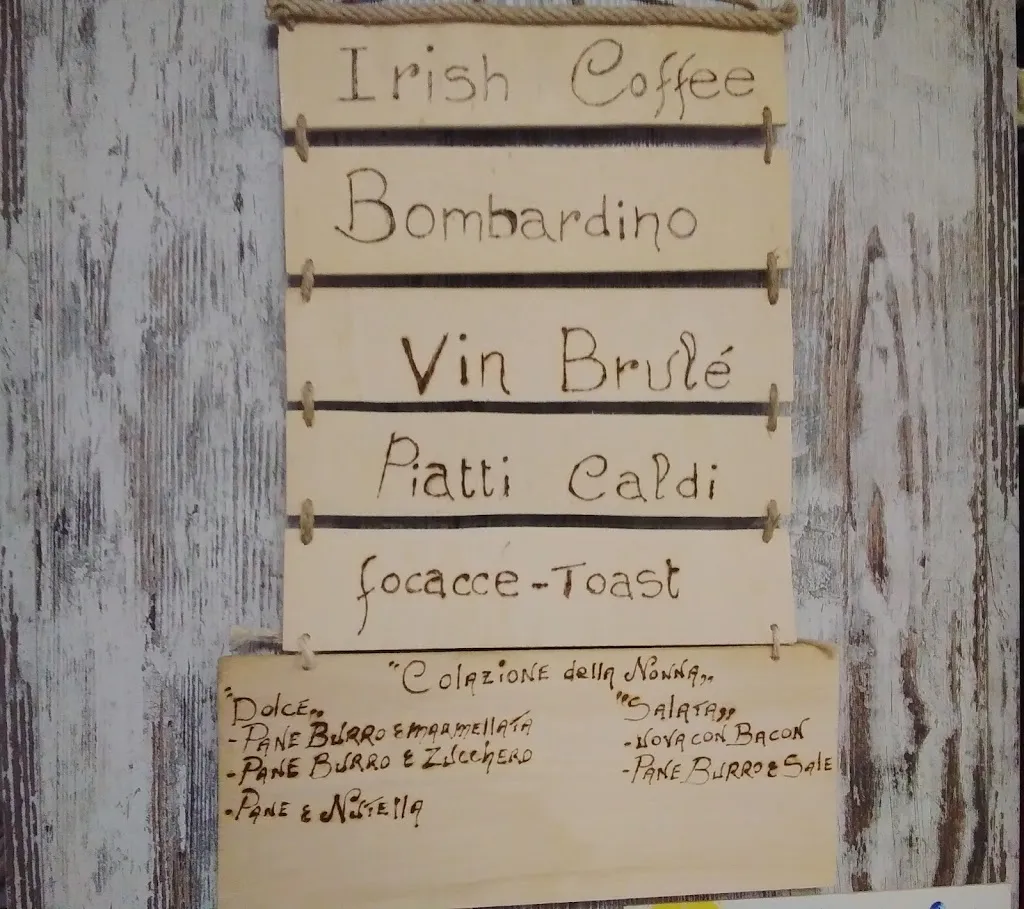 Irish Coffee
Bombardino
Vin Brulé
Piatti Caldi
focacce - Toast
"Colazione della Nonna"
"Dolce"
- Pane Burro & marmellata
- Pane Burro & Zucchero
- Pane & Nutella
"Salata"
- uova con Bacon
- Pane Burro & Sale